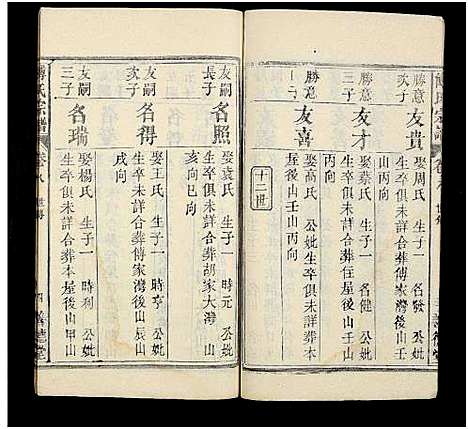 傅氏宗譜
勝意
次子
友貴
娶周氏 生子一 名發 公妣
生卒俱未詳合葬傅家灣後山壬
山丙向
勝意
三子
友才
娶葉氏 生子一 名健 公妣
生卒俱未詳合葬住屋後山壬山
丙向
友喜
娶高氏 公妣生卒俱未詳葬本
屋後山壬山丙向
十二世
友嗣
長子
名照
娶袁氏 生子一 時元 公妣
生卒俱未詳合葬胡家大灣
亥向巳向
友嗣
次子
名得
娶王氏 生子一 時亨 公妣
生卒未詳合葬傅家灣後山辰山
戌向
友嗣
三子
名瑞
娶楊氏 生子一 時利 公妣
生卒俱未詳合葬本屋後山甲山
傅氏宗譜
卷八
世傳
四
善德堂